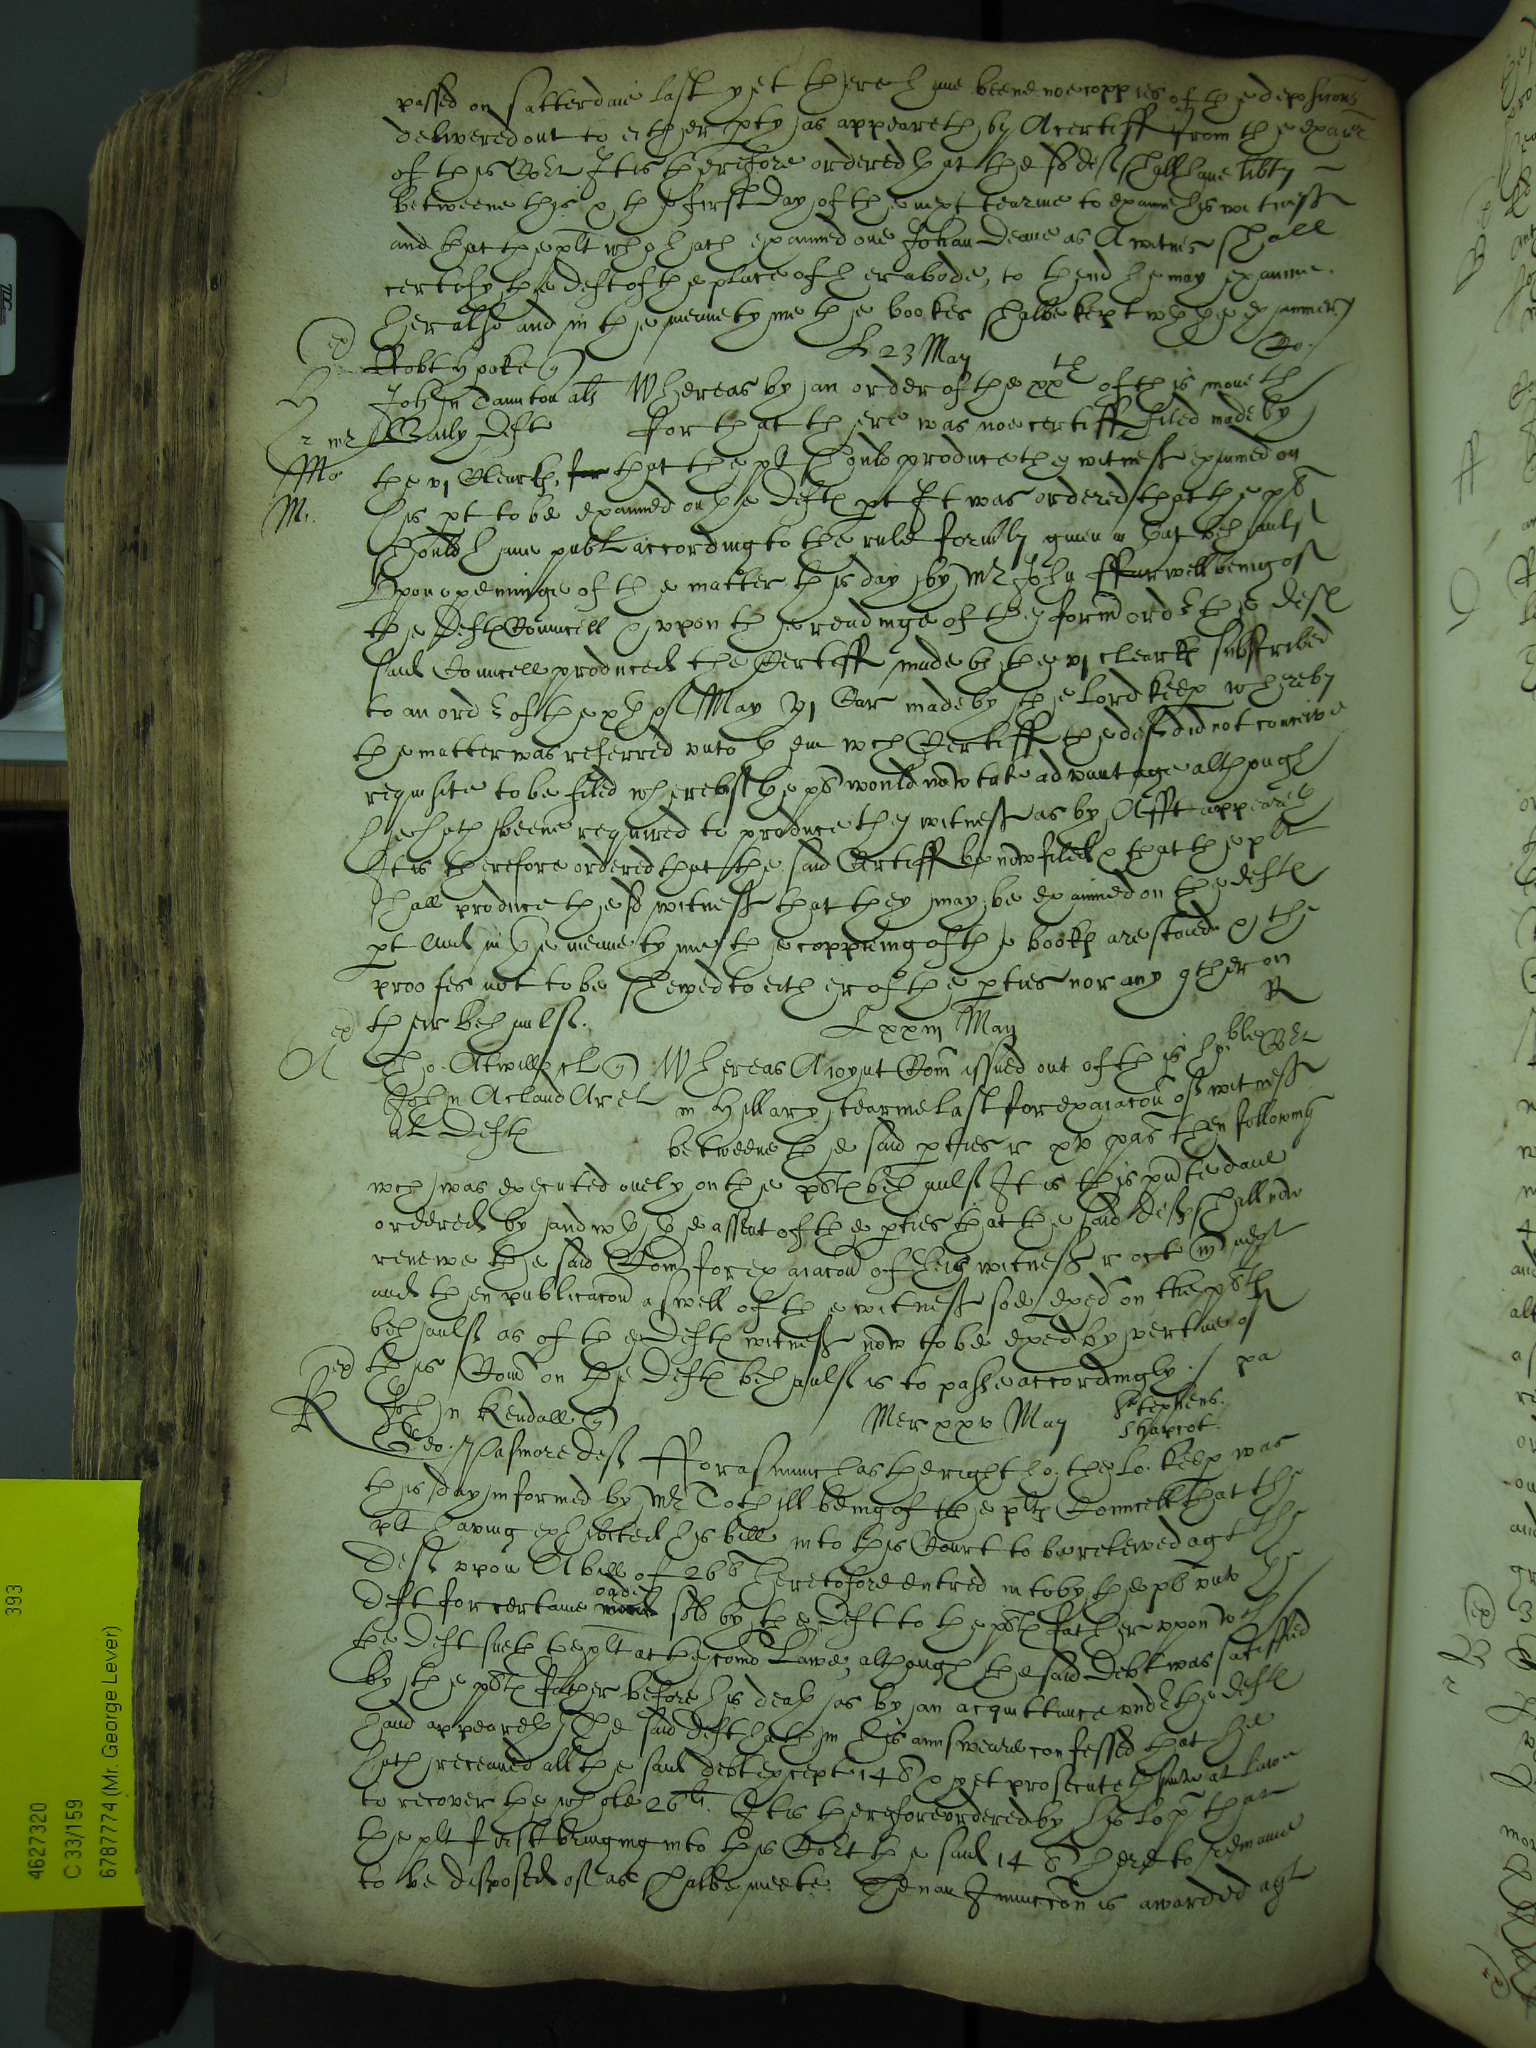 passed on Satterdaie last yet there haue beene noe coppies of the deposicons
deliuered out to either pty as appeareth by A certiff from the exair
of this Cort It is therefore ordered that the sd deft shall haue libty
betweene this & the first day of the next tearme to examine his witnesses
and that the plt who hath examined one Johan Deane as A witnes shall
certefy the deft of the place of her abode, to thend he may examine
her also and in the meane tyme the bookes shalbe kept wth the examiner
Co.
Robt Hpoke q
L 23 May
John Taunton als
Whereas by an order of the xxth of this moneth
Baily Deft
for that there was noe certiff filed made by
the vj Clearks, for that the plt should produce the witnesses examined on
his pt to be examined on the Defts pt It was ordered that the pl
should haue publ according to the rule formly giuen in that behaulf
Upon openinge of the matter this day by Mr John ffarwell being of
the Defts Councell & vpon the readinge of the formr ordr the Deft
said Councell produced the Certiff made by the vj clearks subscribed
to an ordr of the xth of May vj Car made by the Lord Keep whereby
the matter was referred vnto them wch Certiff the deft did not conceive
requisite to be filed whereof the pl would now take advantage although
he hath beene required to produce the witnesses as by Afft appeareth
It is therefore ordered that the said Certiff be now filed & that the plt
shall produce the sd witnesses that they may be examined on the defts
pt And in the meane tyme the coppieing of the books are staied & the
proofes not to be shewed to either of the pties nor any other on
their behaulf.
R
L xxiij May
Tho. Atwill cl q
Whereas A ioynt Com issued out of this hoble Cort
John Acland Ar et
in Hillary tearme last for exaiacon of witnesses
al Defts
betweene the said pties r xv pas then following
wch was executed onely on the plts behaulf It is this pnte daie
ordered by and wth the assent of the pties that the said deft shall now
renewe the said Com for exaiacon of his witnesses r oct mich next
and then publicacon aswell of the witnesses soe exed on the plts
behaulf as of the Defts witnesses now to be exed by vertue of
this Com on the Defts behaulf is to passe accordingly./ pa
John Kendall q
Mer xxv May
Stephens.
Sharcot
Geo: Pasmore Deft
fforasmuch as the right ho. the Lo. Keep was
this day informed by Mr Tothill being of the plts Councell that the
plt having exhibited his bill into this Court to be releiued agt the
Deft vpon A bill of 26l heretofore entred into by the pl vnto the
Deft for certaine oade sold by the Deft to the plts father vpon wch
the Deft sueth the plt at the comon Lawe, although the said Debt was satisfied
by the plts father before his death as by an acquittance vndr the Defts
hand appeareth The said Deft hath in his aunsweare confessed that he
hath receaued all the said debt except 14l & yet prosecuteth suite at Lawe
to recover the whole 26li. It is therefore ordered by his Lop that
the plt first bringing into this Cort the said 14l there to remaine
to be disposed of as shalbe meete. Then an Iniuncon is awarded agt
393
4627320
C 33/159
6787774 (Mr. George Lever)